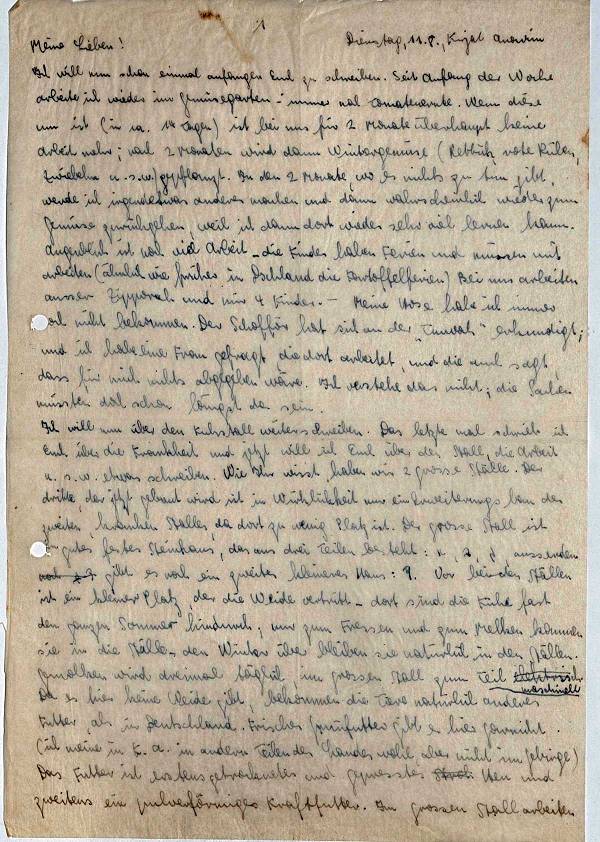 1
Dienstag, 11.8., Kirjat Anavim
Meine Lieben!
Ich will nun schon einmal anfangen Euch zu schreiben. Seit Anfang der Woche
arbeite ich wieder im Gemüsegarten - immer noch Tomatenernte. Wenn diese
um ist (in ca. 14 Tagen) ist bei uns für 2 Monate überhaupt keine
Arbeit mehr; nach 2 Monaten wird dann Wintergemüse (Rettich, rote Rüben,
Zwiebeln u.s.w.) gepflanzt. In den 2 Monate, wo es nichts zu tun gibt,
werde ich irgendetwas anderes machen und dann wahrscheinlich wieder zum
Gemüse zurückgehen, weil ich dann dort wieder sehr viel lernen kann.
Augenblicklich ist noch viel Arbeit - die Kinder haben Ferien und müssen mit
arbeiten (ähnlich wie früher in Dschland die Kartoffelferien) Bei uns arbeiten
ausser Zipporah und mir 4 Kinder. - Meine Hose habe ich immer
noch nicht bekommen. Der Schofför hat sich an der "Tnuvah" erkundigt;
und ich habe eine Frau gefragt, die dort arbeitet, und die auch sagt,
dass für mich nichts abgegeben wäre. Ich verstehe das nicht; die Sachen
müssten doch schon längst da sein.
Ich will nun über den Kuhstall weiterschreiben. Das letzte mal schrieb ich
Euch über die Krankheit und jetzt will ich Euch über den Stall, die Arbeit
u.s.w. etwas schreiben. Wie Ihr wisst, haben wir 2 grosse Ställe. Der
dritte, der jetzt gebaut wird ist in Wirklichkeit nur ein Erweiterungsbau des
zweiten, kranken Stalles, da dort zu wenig Platz ist. Der grosse Stall ist
ein gutes festes Steinhaus, das aus drei Teilen besteht: ausserdem
gibt es noch ein zweites kleineres Haus: Vor beiden Ställen
ist ein kleiner Platz, der die Weide vertritt - dort sind die Kühe fast
den ganzen Sommer hindurch; nur zum Fressen und zum Melken kommen
sie in die Ställe - den Winter über bleiben sie natürlich in den Ställen.
Gemolken wird dreimal täglich im grossen Stall zum Teil elektrisch
maschinell
Da es hier keine Weide gibt, bekommen die Tiere natürlich anderes
Futter, als in Deutschland. Frisches Grünfutter gibt es hier garnicht.
(ich meine in K.A. in andern Teilen des Landes wohl, aber nicht im Gebirge)
Das Futter ist erstens getrocknetes und gepresstes Heu und
zweitens ein pulverförmiges Kraftfutter. Im grossen Stall arbeiten